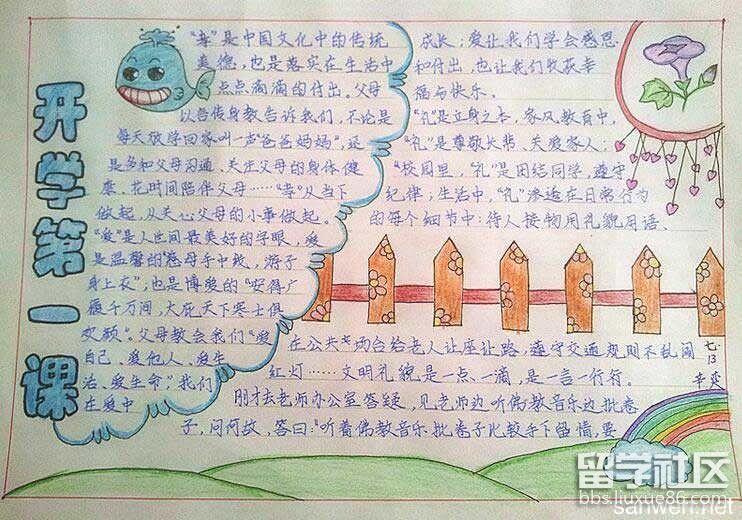 开学第一课
“孝”是中国文化中的传统
美德，也是落实在生活中
点点滴滴的付出。父母
以言传身教告诉我们，不论是
每天放学回家叫一声“爸爸妈妈”，还
是多和父母沟通、关注父母的身体健
康、花时间陪伴父母……“孝”从当下
做起，从关心父母的小事做起。
“爱”是人世间最美好的字眼，爱
是温馨的“慈母手中线，游子
身上衣”，也是博爱的“安得广
厦千万间，大庇天下寒士俱
欢颜”。父母教会我们“爱
自己、爱他人、爱生
活、爱生命”我们
在爱中
成长；爱让我们学会感恩
和付出，也让我们收获幸
福与快乐。
“礼”是立身之本，家风教育中，
“礼”是尊敬长辈、关爱家人；
“校园里，“礼”是团结同学，遵守
纪律；生活中，“礼”渗透在日常行为
的每个细节中：待人接物用礼貌用语、
在公共场台给老人让座让路，遵守交通规则不乱闯
红灯……文明礼貌是一点一滴，是一言一行行。
刚才去老师办公室答疑，见老师边听佛教音乐边批卷
子，问何故，答曰：“听着佛教音乐批卷子比较手下留情，要
七·13
留学社区
bbs.liuxue86.com
sanwen.net